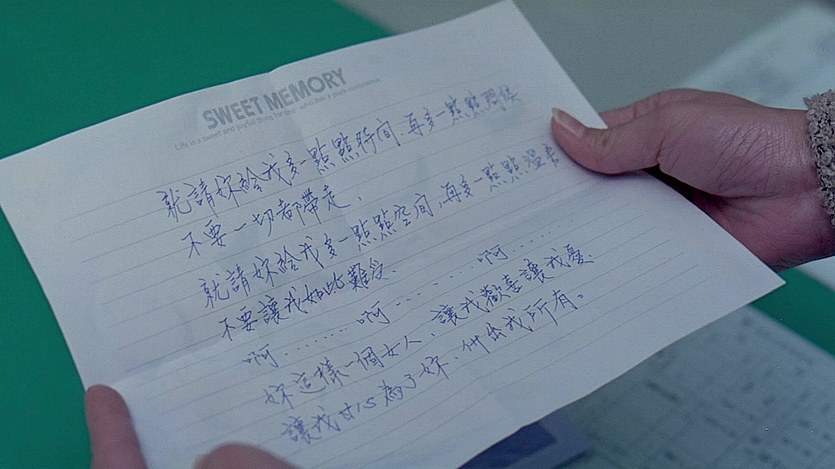 SWEET MEMORY
Life is a sweet and joyful thing for one who has a pure conscience.
就請妳給我多一點點時間,再多一點點問候
不要一切都帶走,
就請妳給我多一點點空間,再多一點點溫柔
不要讓我如此難受.
啊………啊………啊……
妳這樣一個女人、讓我歡喜讓我憂.
讓我甘心為了妳、付出我所有。